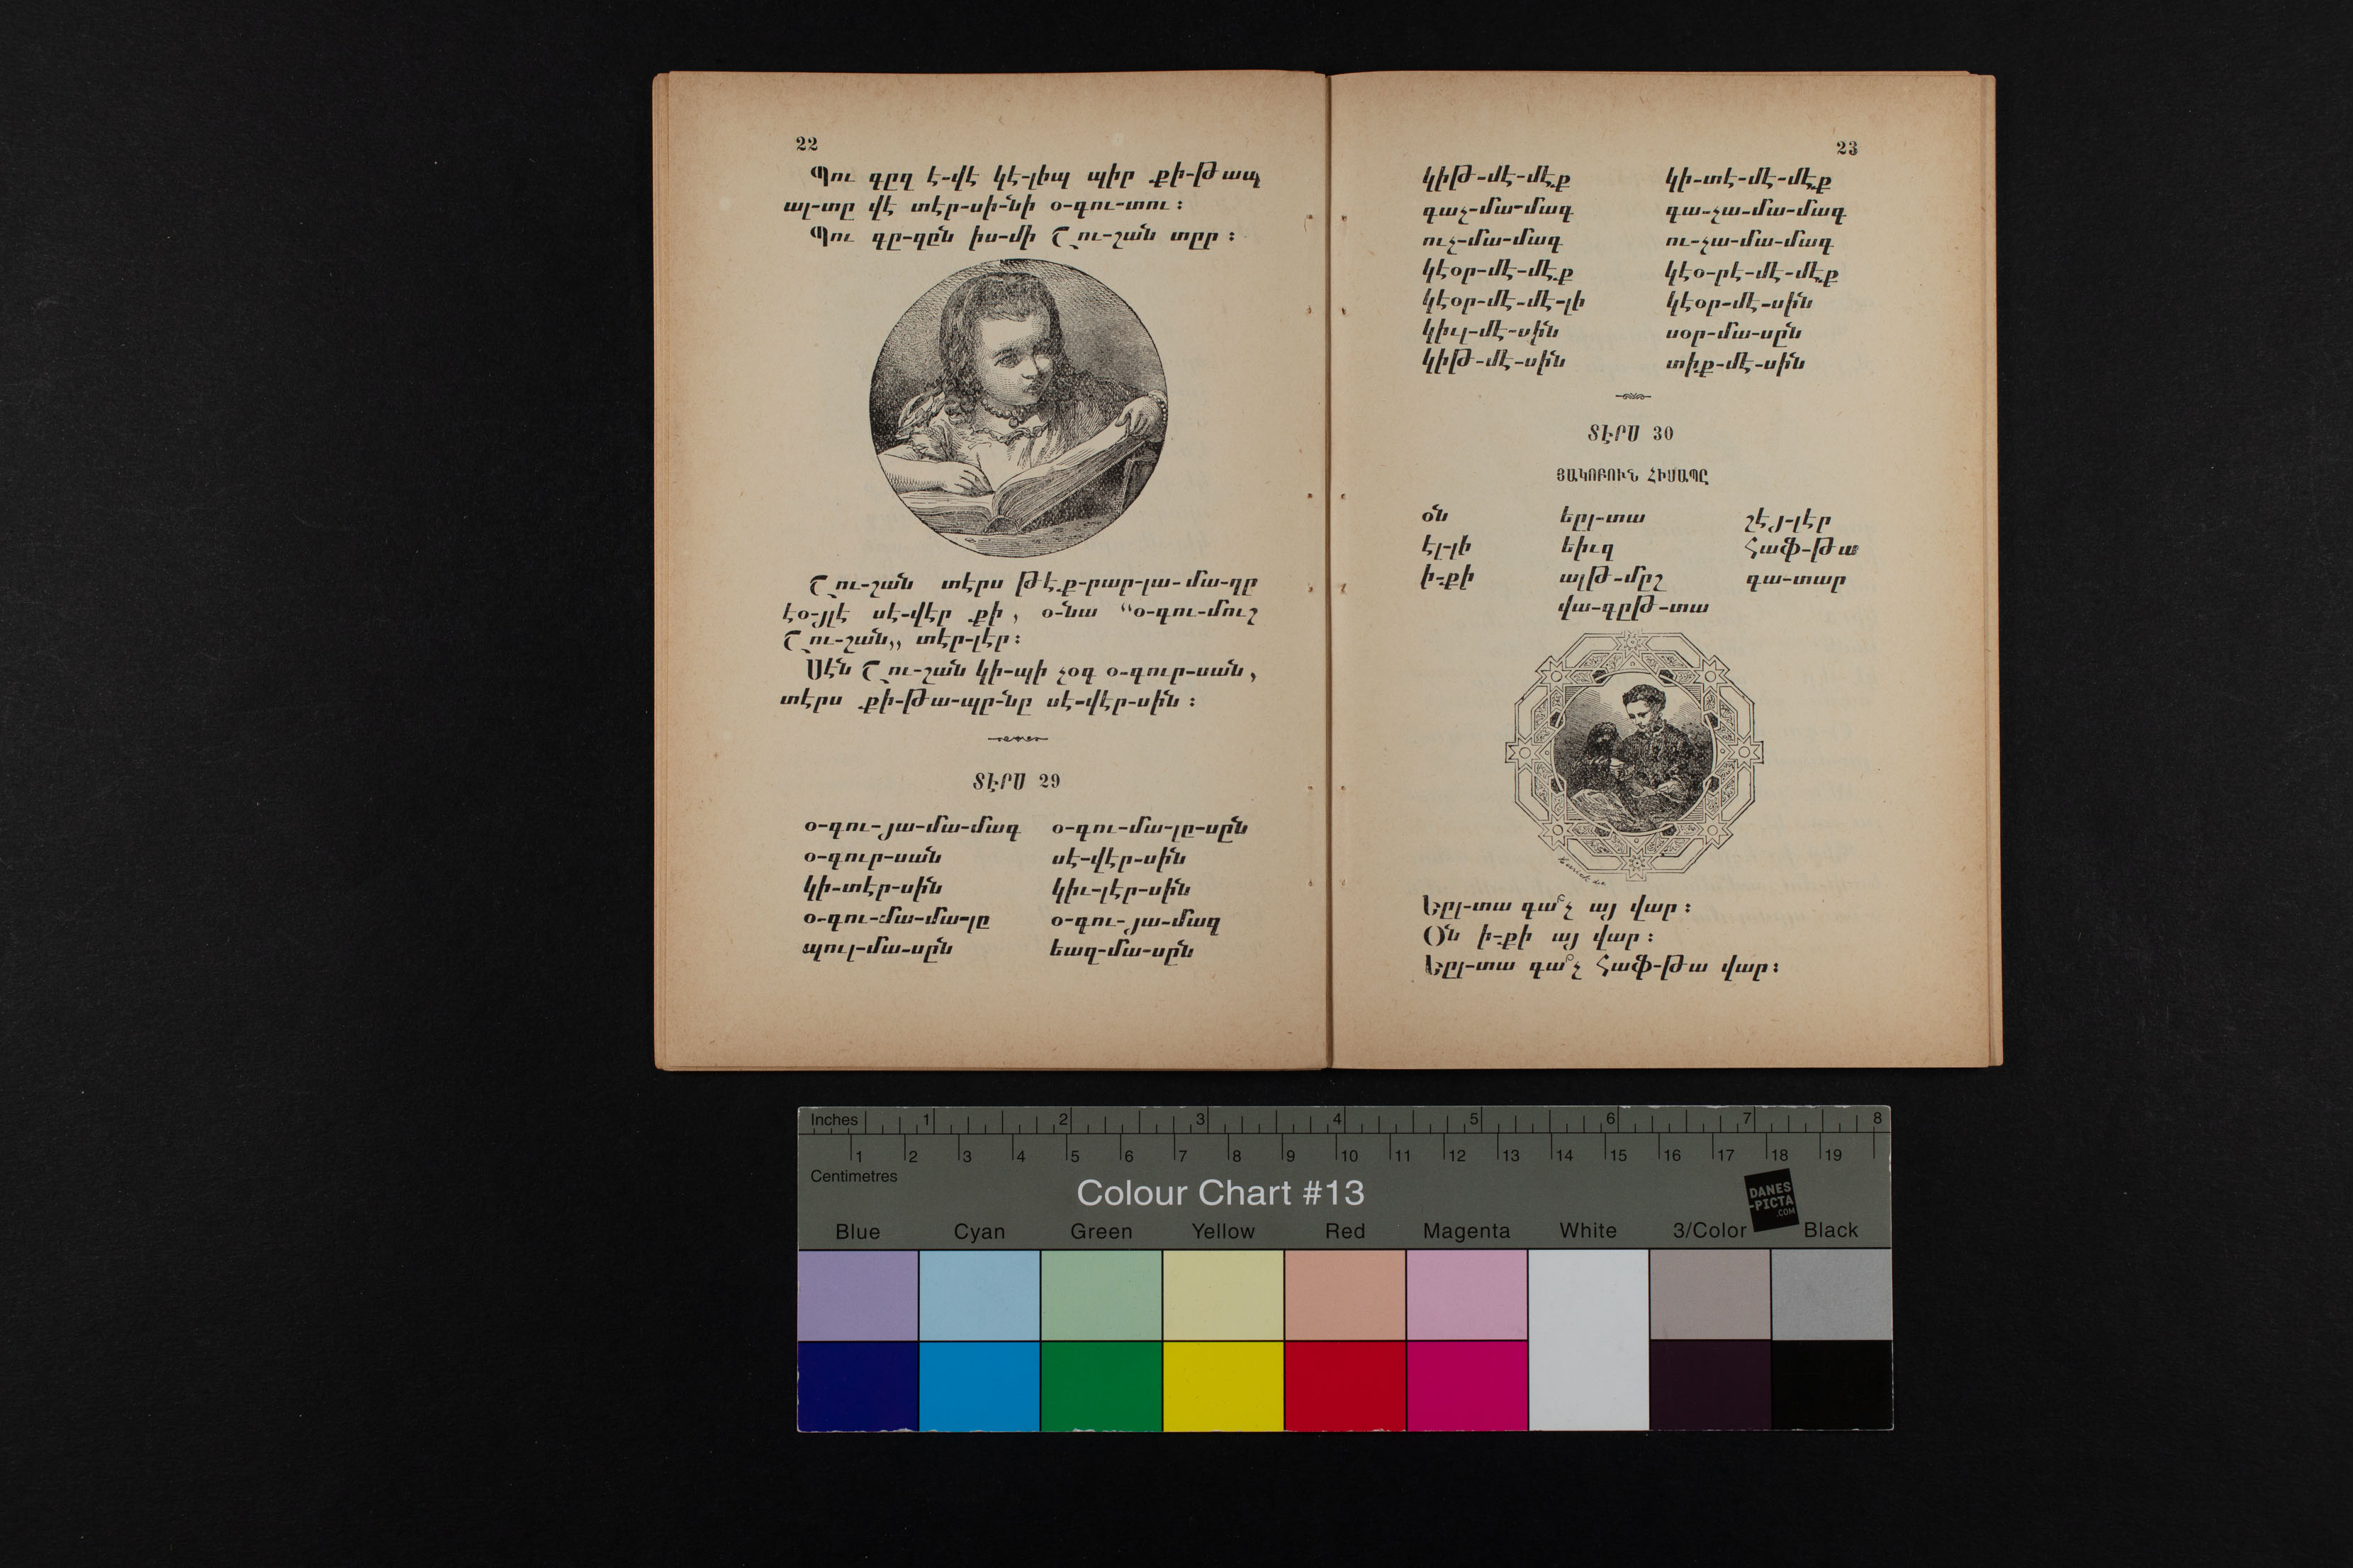 22
Պու գըզ է-վէ կէ-լիպ պիր քի-թապ
ալ-տը վէ տէր-սի-նի օ-գու-տու։
Պու գը-զըն իս-մի Շու-շան տըր։
Շու-շան տէրս թէք-րար-լա-մա-ղը
էօ-յլէ սէ-վէր քի, օ-նա “օ-գու-մուշ
Շու-շան„ տէր-լէր։
Սէն Շու-շան կի-պի չօգ օ-գուր-սան,
տէրս քի-թա-պըր-նը սէ-վէր-սին։
ՏԷՐՍ 29
օ-գու-յա-մա-մագ օ-գու-մա-լը-սըն
օ-գուր-սան սէ-վէր-սին
կի-տէր-սին կիւ-լէր-սին
օ-գու-մա-մա-լը օ-գու-յա-մազ
պուլ-մա-սըն եազ-մա-սըն
23
կիթ-մէ-մէք կի-տէ-մէ-մէք
գաչ-մա-մագ գա-չա-մա-մագ
ուչ-մա-մագ ու-չա-մա-մագ
կէօր-մէ-մէք կէօ-րէ-մէ-մէք
կէօր-մէ-մէ-լի կէօր-մէ-սին
կիւլ-մէ-սին սօր-մա-սըն
կիթ-մէ-սին տիք-մէ-սին
ՏԷՐՍ 30
ՅԱԿՈԲՈՒՆ ՀԻՍԱՊԸ
օն եըլ-տա շէյ-լէր
էլ-լի եիւզ հաֆ-թա
ի-քի ալթ-մըշ գա-տար
վա-գըթ-տա
Եըլ-տա գա՞չ այ վար։
Օն ի-քի այ վար։
Եըլ-տա գա՞չ հաֆ-թա վար։
Inches 1 2 3 4 5 6 7 8
1 2 3 4 5 6 7 8 9 10 11 12 13 14 15 16 17 18 19
Centimetres
Colour Chart #13
DANES
-PICTA
.COM
Blue Cyan Green Yellow Red Magenta White 3/Color Black